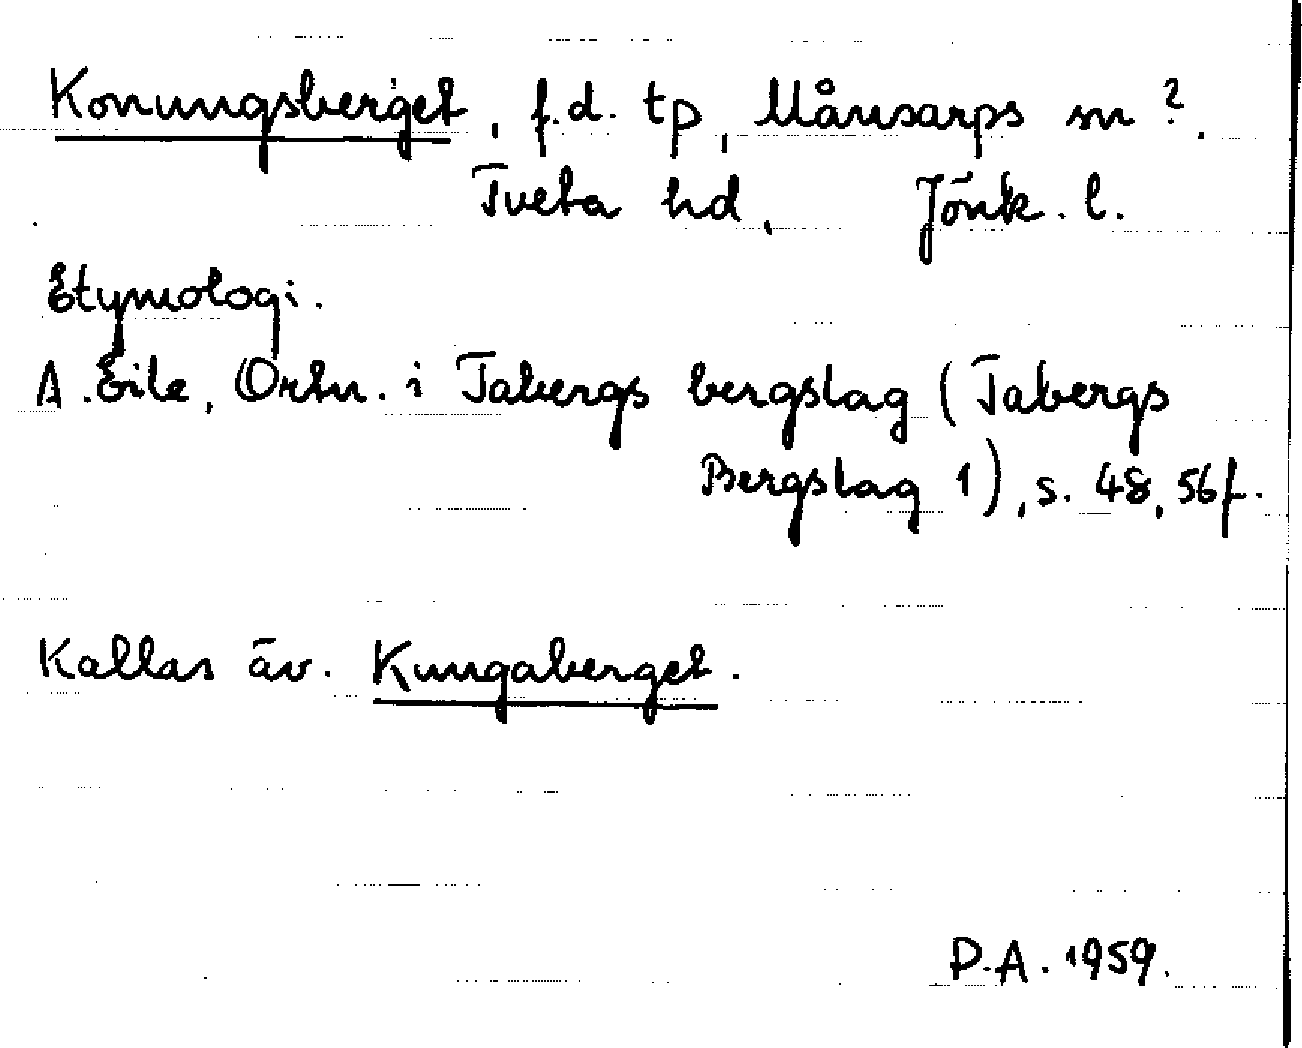 Konungsberget, f.d. tp, Månsarps sn ?.
Tveta hd, Jönk. l.
Etymologi.
A. Eile, Ortn. i Tabergs bergslag (Tabergs
Bergslag 1), s. 48, 56f.
Kallas äv. Kungaberget.
P.A. 1959.